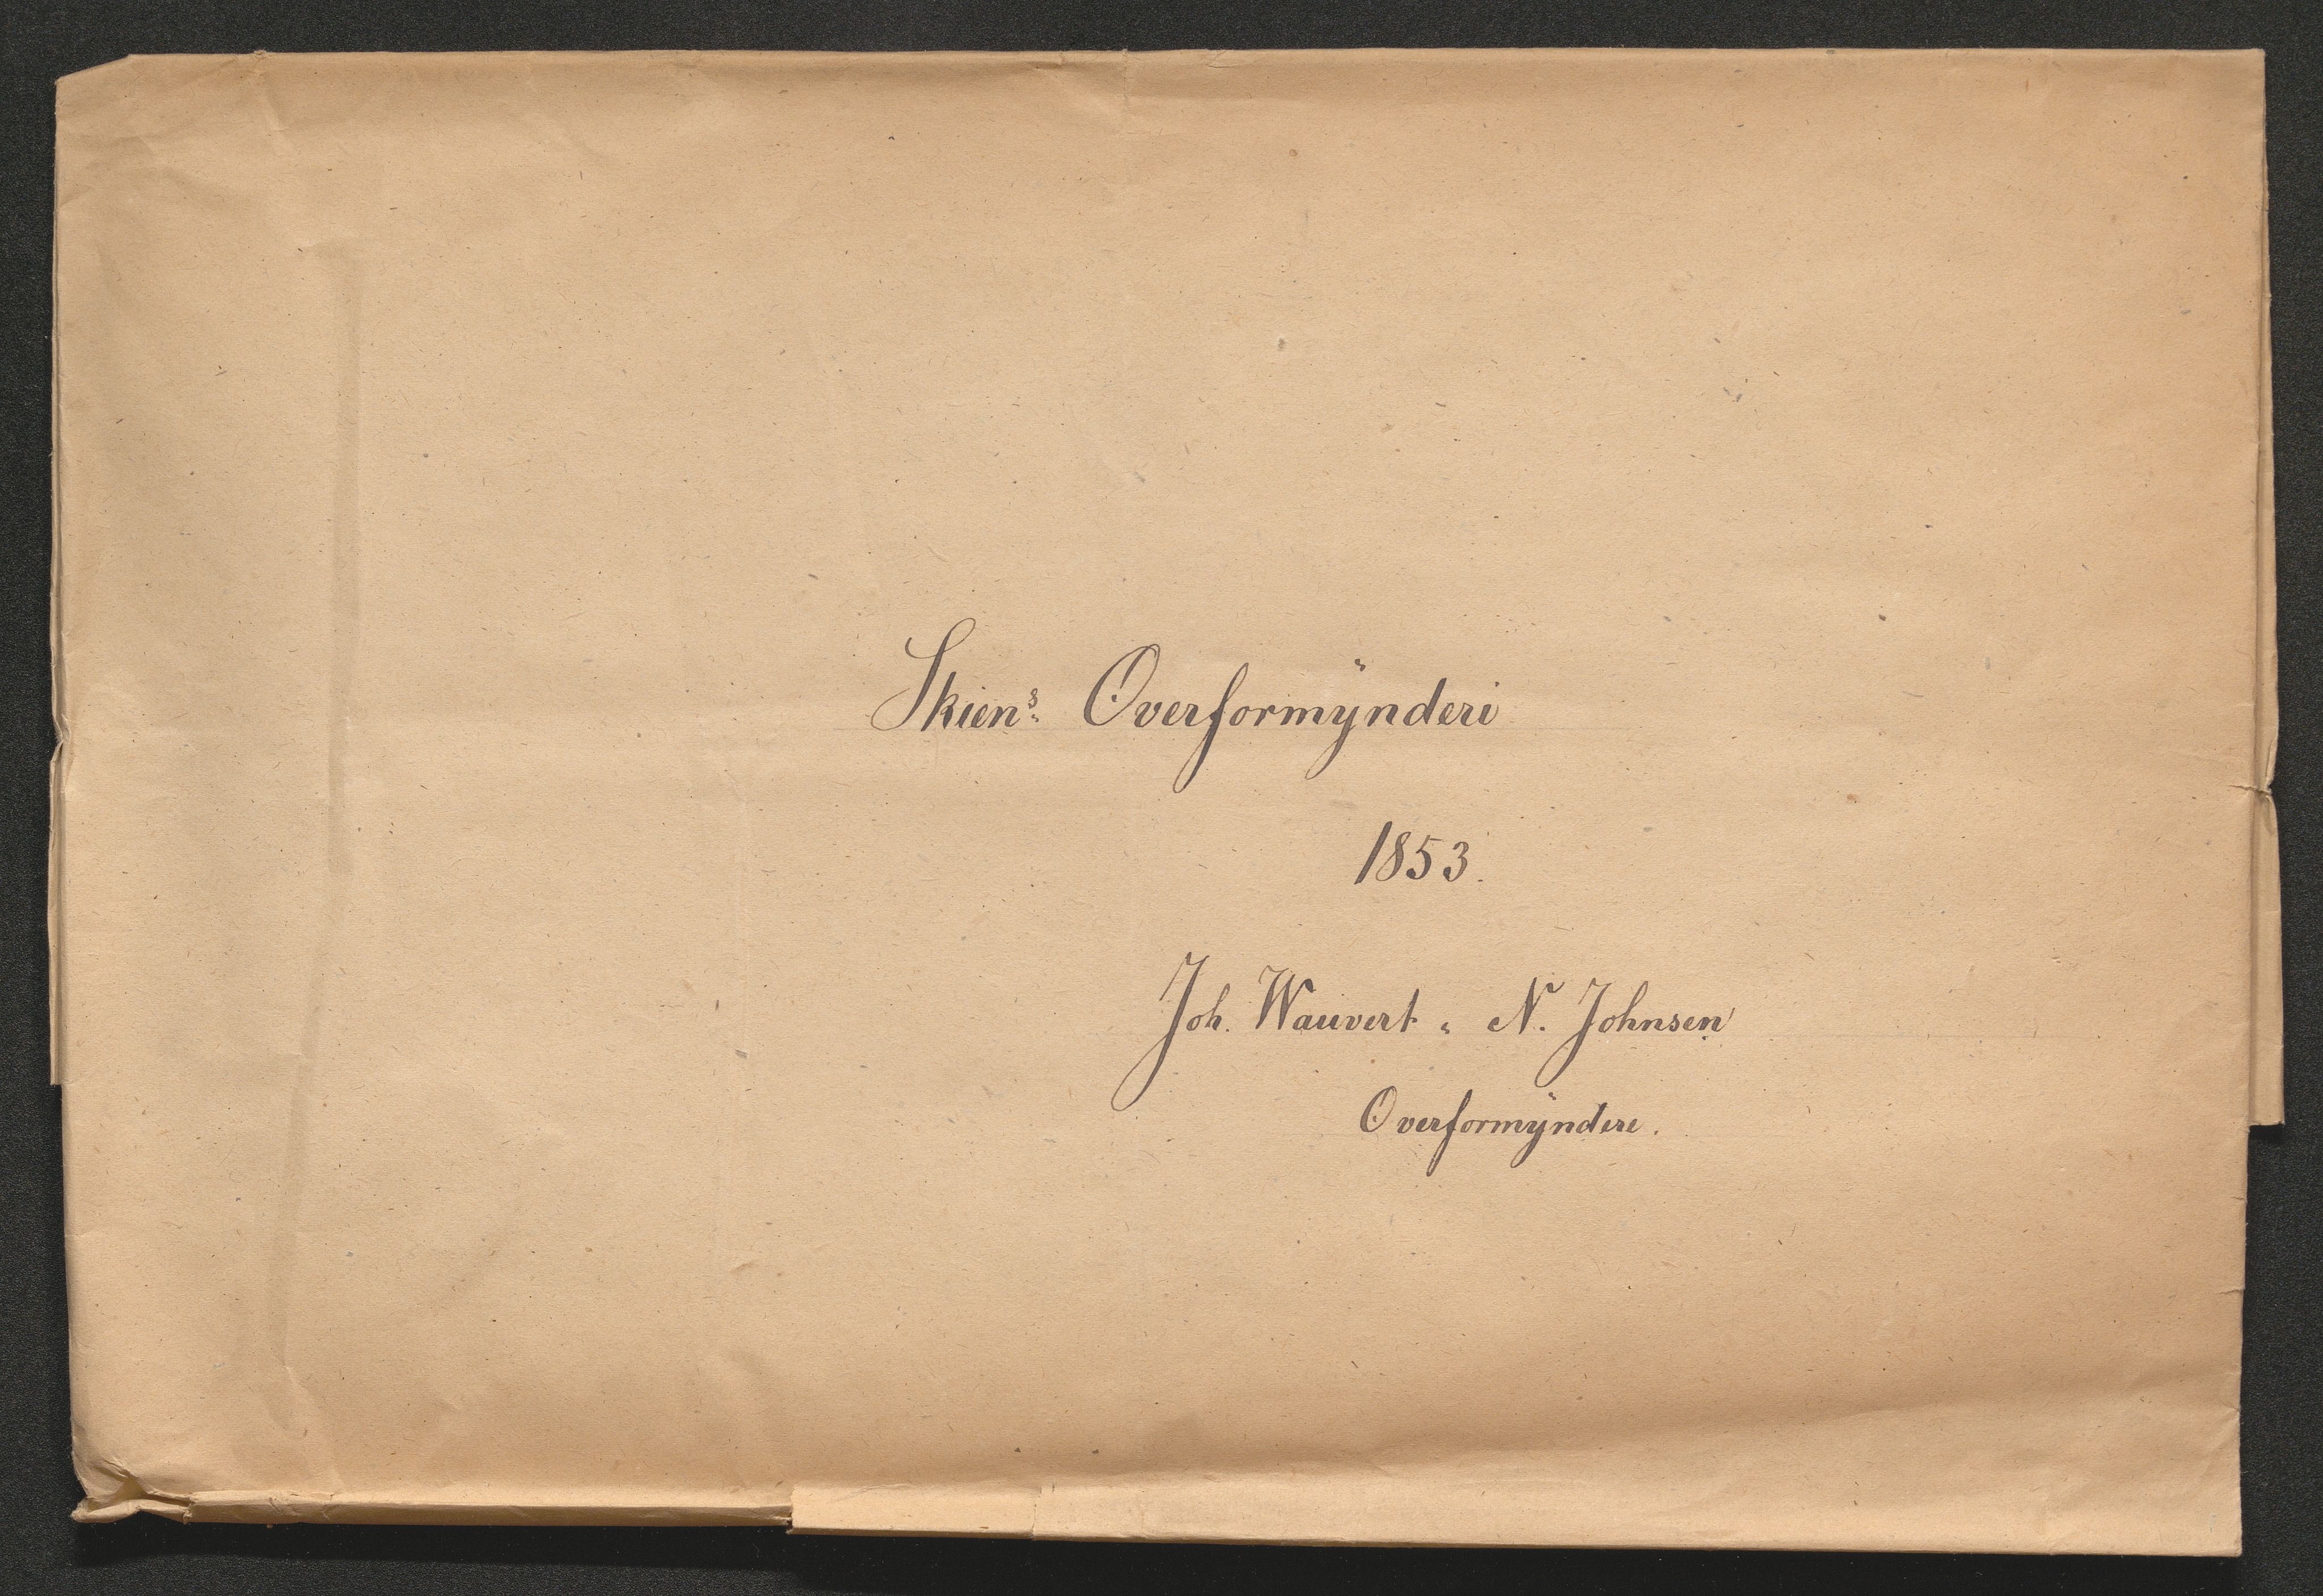 Skiens Overformÿnderi
1853.
Joh. Wauvert . N. Johnsen
Overformÿndere.